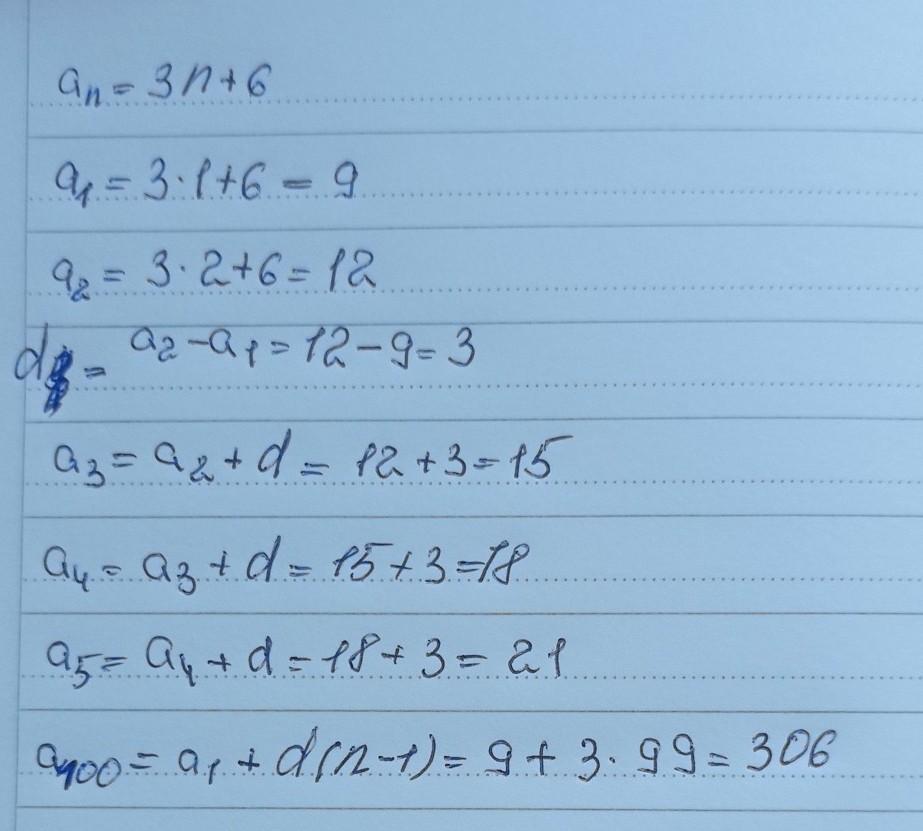 aₙ = 3n+6
a₁ = 3·1+6 = 9
a₂ = 3·2+6 = 12
d = a₂-a₁ = 12-9 = 3
a₃ = a₂+d = 12+3 = 15
a₄ = a₃+d = 15+3 = 18
a₅ = a₄+d = 18+3 = 21
a₁₀₀ = a₁+d(n-1) = 9+3·99 = 306